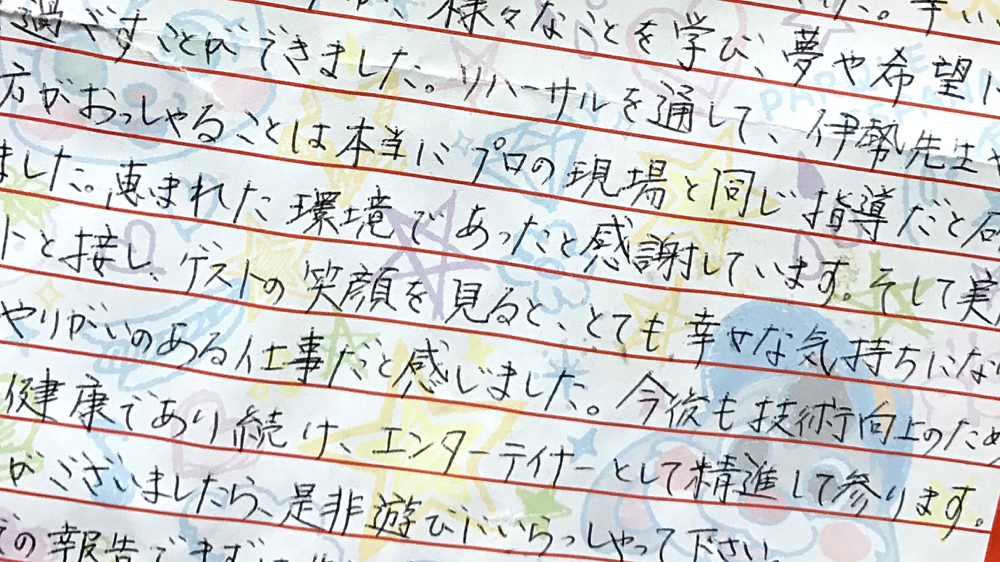 様々なことを学び、夢や希望に
過ごすことができました。リハーサルを通して、伊勢先生や
方がおっしゃることは本当にプロの現場と同じ指導だと
ました。恵まれた環境であったと感謝しています。そして実
トと接し、ゲストの笑顔を見ると、とても幸せな気持ちになり
やりがいのある仕事だと感じました。今後も技術向上のため
健康であり続け、エンターテイナーとして精進して参ります。
がございましたら、是非遊びにいらっしゃって下さい。
の報告で